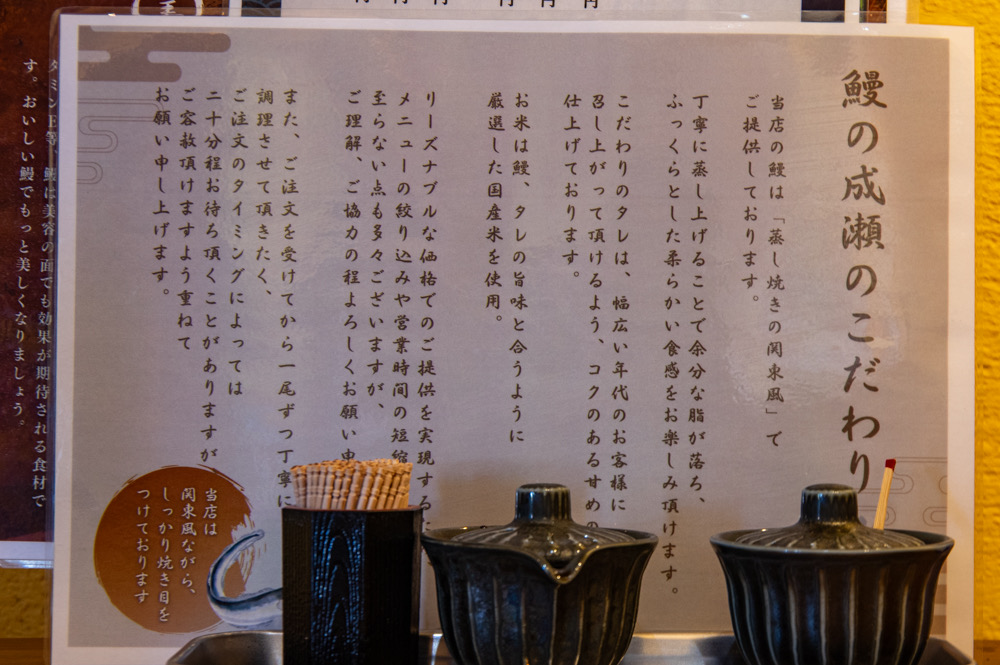 鰻の成瀬のこだわり
当店の鰻は「蒸し焼きの関東風」で
ご提供しております。
丁寧に蒸し上げることで余分な脂が落ち、
ふっくらとした柔らかい食感をお楽しみ頂けます。
こだわりのタレは、幅広い年代のお客様に
召し上がって頂けるよう、コクのある甘めの
仕上げております。
お米は鰻、タレの旨味と合うように
厳選した国産米を使用。
リーズナブルな価格でのご提供を実現する
メニューの絞り込みや営業時間の短縮
至らない点も多々ございますが、
ご理解、ご協力の程よろしくお願い申
また、ご注文を受けてから一尾ずつ丁寧に
調理させて頂きたく、
ご注文のタイミングによっては
二十分程お待ち頂くことがありますが
ご容赦頂けますよう重ねて
お願い申し上げます。
当店は
関東風ながら、
しっかり焼き目を
つけております
鰻は美容の面でも効果が期待される食材で
す。おいしい鰻でもっと美しくなりましょう。